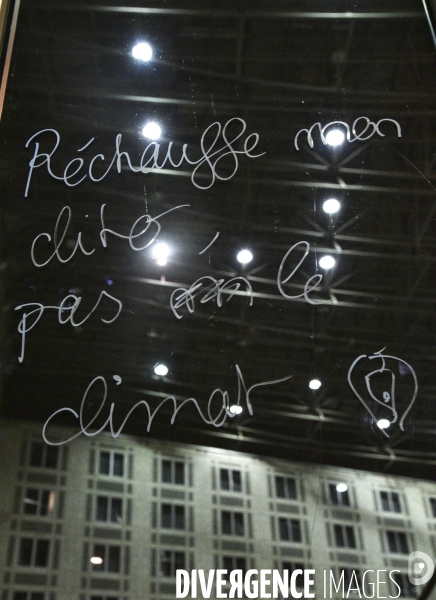 Réchauffe mon
clito,
pas le
climat
DIVERGENCE IMAGES